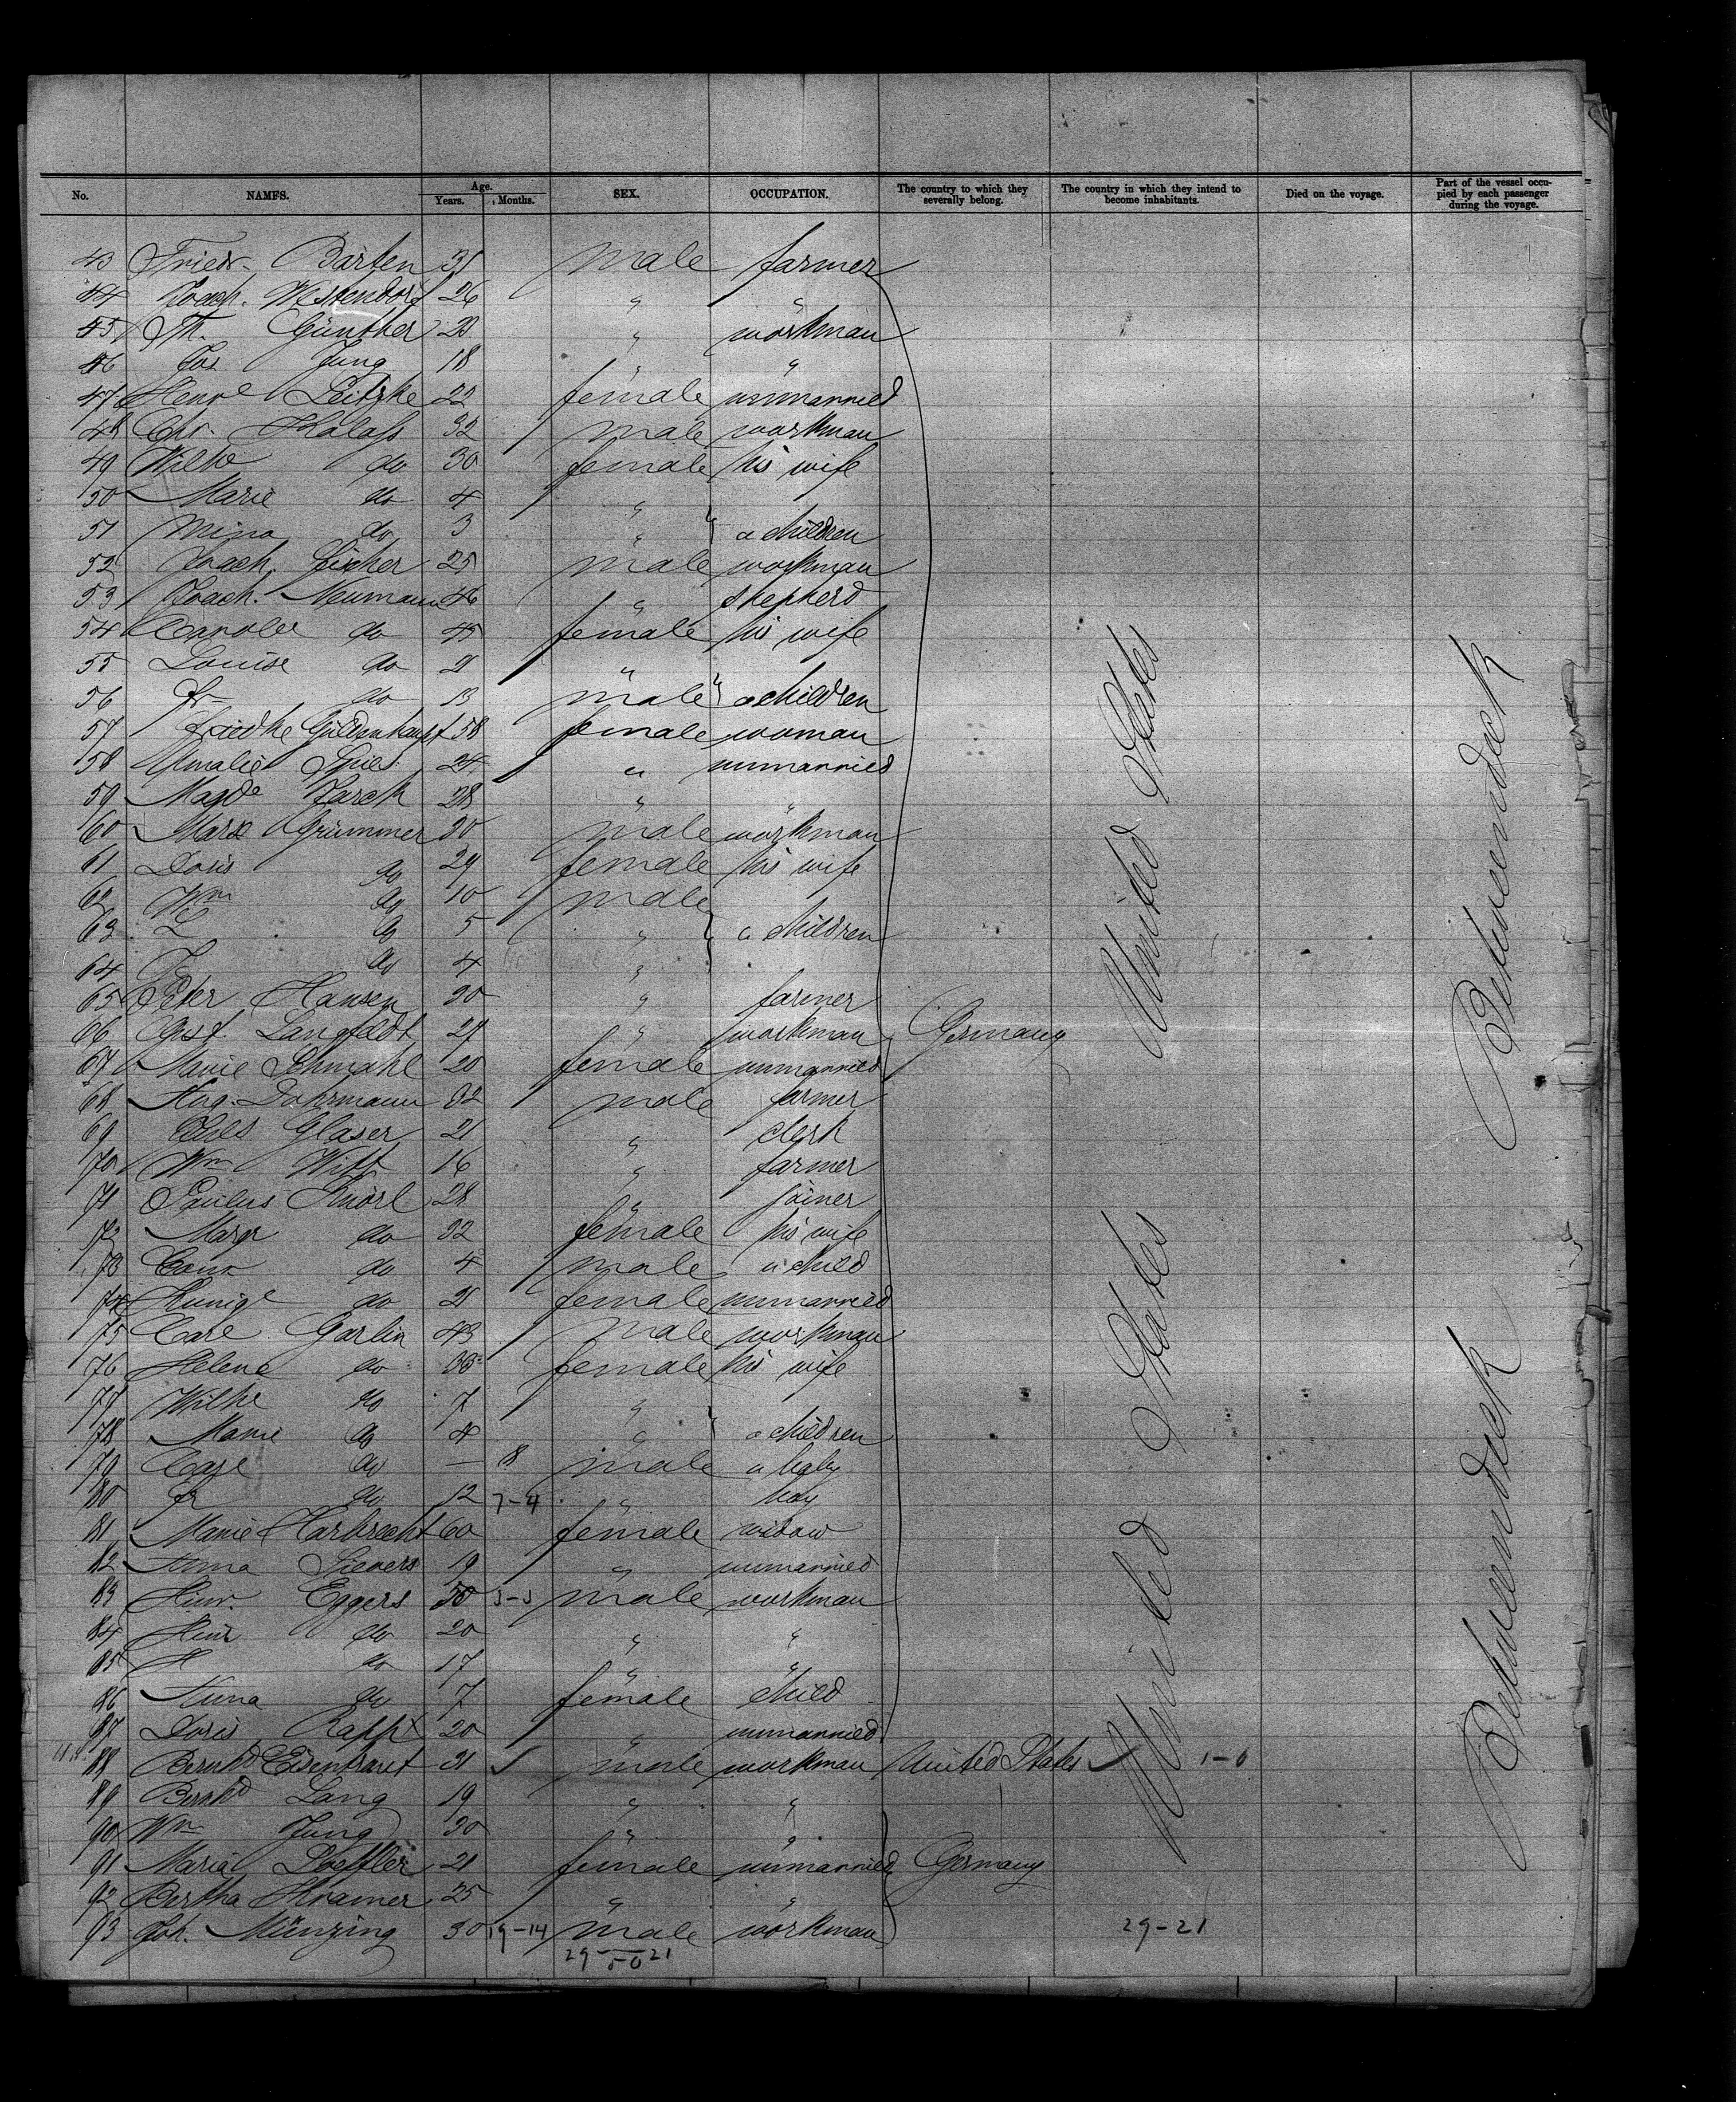 No. NAMES. Age. Years. Months. SEX. OCCUPATION. The country to which they severally belong. The country in which they intend to become inhabitants. Died on the voyage. Part of the vessel occupied by each passenger during the voyage.
43 Friedr. Barfen 31 male farmer
44 Joach. Westendorf 26 " "
45 Th. Günther 23 " workman
46 Jos Jung 18 " "
47 Henre Leitzke 22 female unmarried
48 Chr. Kalass 32 male workman
49 Wilhe do 30 female his wife
50 Marie do 4 "
51 Mina do 3 " a children
52 Joach. Fischer 25 male workman
53 Joach. Neumann 46 " shepherd
54 Carolee do 45 female his wife
55 Louise do 21 "
56 Fr do 13 male " a children
57 Friedke Güldenhaupt 58 female woman
58 Amalie Spies 24 " unmarried
59 Magde Jarck 28 " "
60 Marx Grümmer 30 male workman
61 Doris do 29 female his wife
62 Wm do 10 male
63 L do 5 " a children
64 J do 4 "
65 Peter Hansen 20 " farmer
66 Aust. Langfeldt 27 " workman Germany United States Betweendeck
67 Marie Schmahl 20 female unmarried
68 Aug. Dohrmann 32 male farmer
69 Chls Glaser 21 " clerk
70 Wm Witt 16 " farmer
71 Paulus Knörl 28 " joiner
72 Margr do 32 female his wife
73 Conr do 4 male a child
74 Kunige do 21 female unmarried
75 Carl Garlin 43 male workman
76 Helene do 33 female his wife
77 Wilhe do 7 "
78 Marie do 4 " a children
79 Carl do — 8 male a baby
80 Fr do 12 7-4 " boy
81 Marie Harbrecht 60 female widow
82 Anna Sievers 19 " unmarried
83 Hinr. Eggers 50 5-5 male workman
84 Hinr do 20 " "
85 H do 17 " "
86 Anna do 7 female child
87 Doris Rapp 20 " unmarried
88 Bernhd Eisenhardt 21 male workman United States 1-0 United States Betweendeck
89 Bernhd Lang 19 " "
90 Wm Jung 30 " "
91 Maria Loeffler 21 female unmarried Germany
92 Bertha Kramer 25 " "
93 Joh. Münzing 30 19-14 male workman 29-21
29-21
50